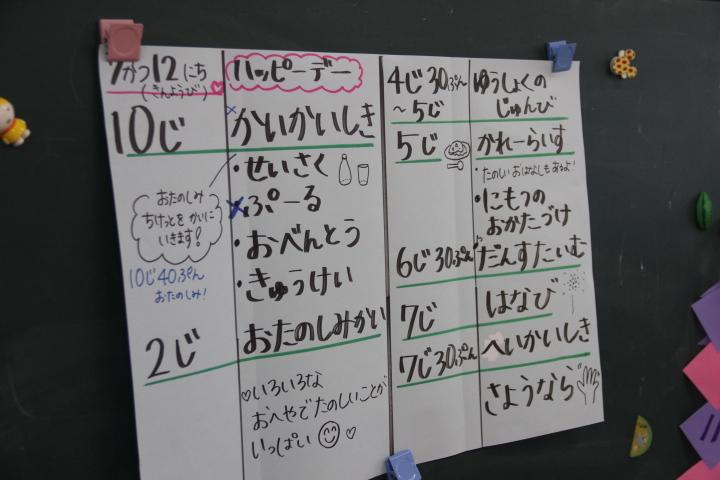 7がつ12にち
(きんようび)
ハッピーデー
10じ
かいかいしき
・せいさく
・ぷーる
・おべんとう
・きゅうけい
おたのしみ
ちけっとをかいに
いきます!
10じ40ぷん
おたのしみ!
2じ
おたのしみかい
♡いろいろな
おへやでたのしいことが
いっぱい♡
4じ30ぷん
～5じ
ゆうしょくの
じゅんび
5じ
かれーらいす
・たのしいおはなしもあるよ!
・にもつの
おかたづけ
6じ30ぷん
だんすたいむ
7じ
はなび
7じ30ぷん
へいかいしき
さようなら